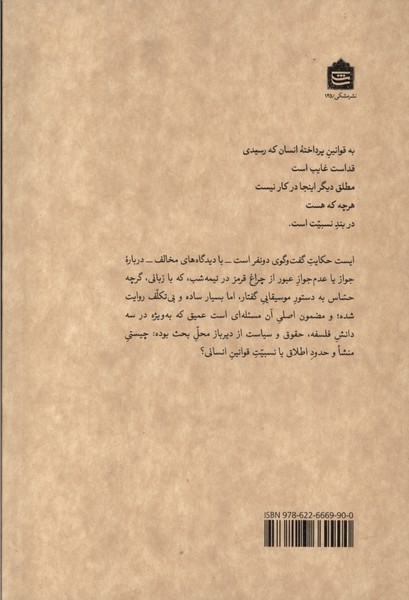 نشر مشکی / ۱۹۵
به قوانینِ پرداختهٔ انسان که رسیدی
قداست غایب است
مطلق دیگر اینجا در کار نیست
هرچه که هست
در بندِ نسبیّت است.
ایست حکایتِ گفت‌وگوی دونفر است ــ با دیدگاه‌های مخالف ــ دربارهٔ
جواز یا عدم‌جوازِ عبور از چراغ قرمز در نیمه‌شب، که با زبانی، گرچه
حسّاس به دستورِ موسیقاییِ گفتار، اما بسیار ساده و بی‌تکلّف روایت
شده؛ و مضمون اصلیِ آن مسئله‌ای است عمیق که به‌ویژه در سه
دانشِ فلسفه، حقوق و سیاست از دیرباز محلِّ بحث بوده: چیستیِ
منشأ و حدودِ اطلاق یا نسبیّتِ قوانینِ انسانی؟
ISBN 978-622-6669-90-0